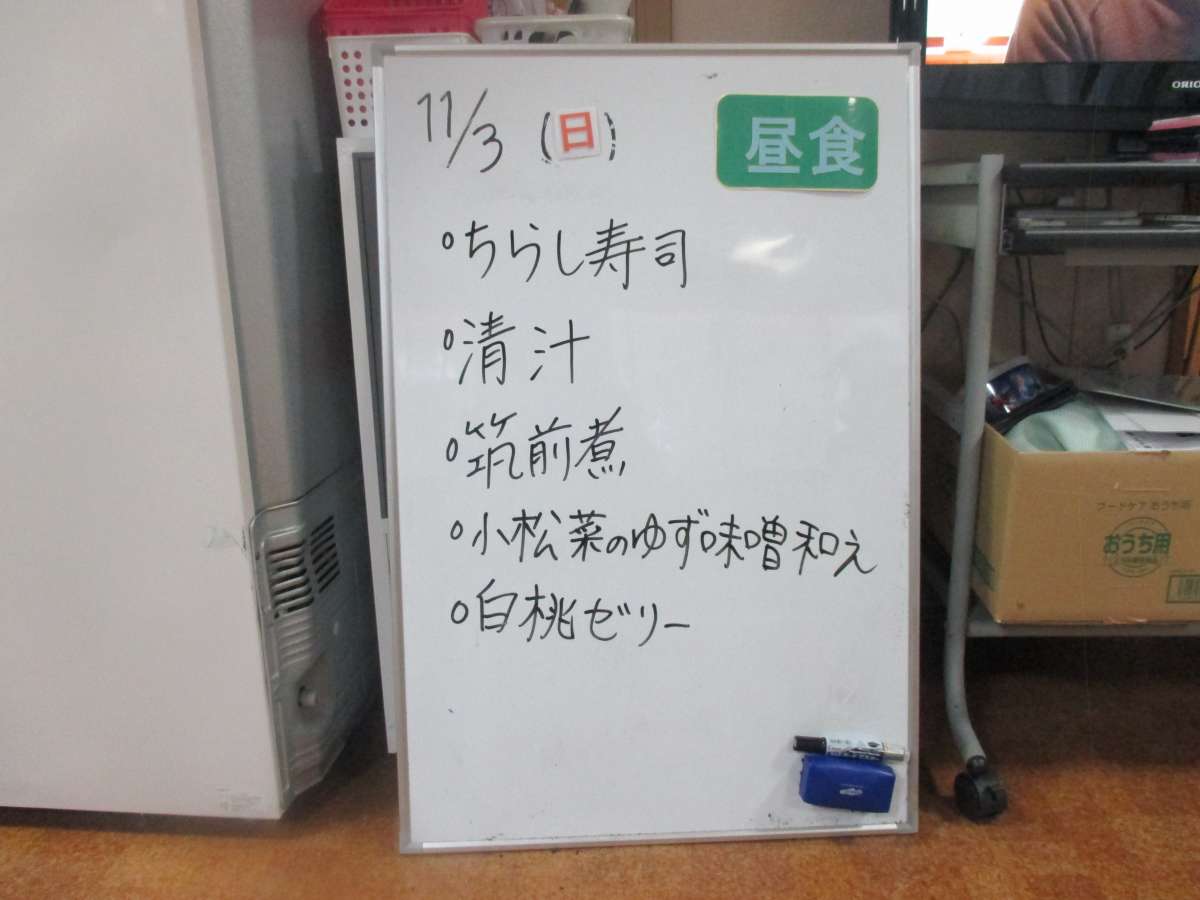 11/3 (日)
昼食
ちらし寿司
清汁
筑前煮
小松菜のゆず味噌和え
白桃ゼリー
ORIO
フードケア おうち用
おうち用